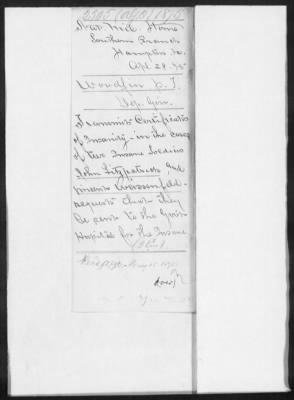 2505 (AGO) 1875
Nat. Mil. Home
Southern Branch
Hampton Va.
Apl 28 /75
Woodfin P. T.
Dep. Gov.
Transmits Certificates
of Insanity - in the cases
of two Insane Soldiers
John Fitzpatrick, and
requests that they
be sent to the Govt
Hospital for the Insane